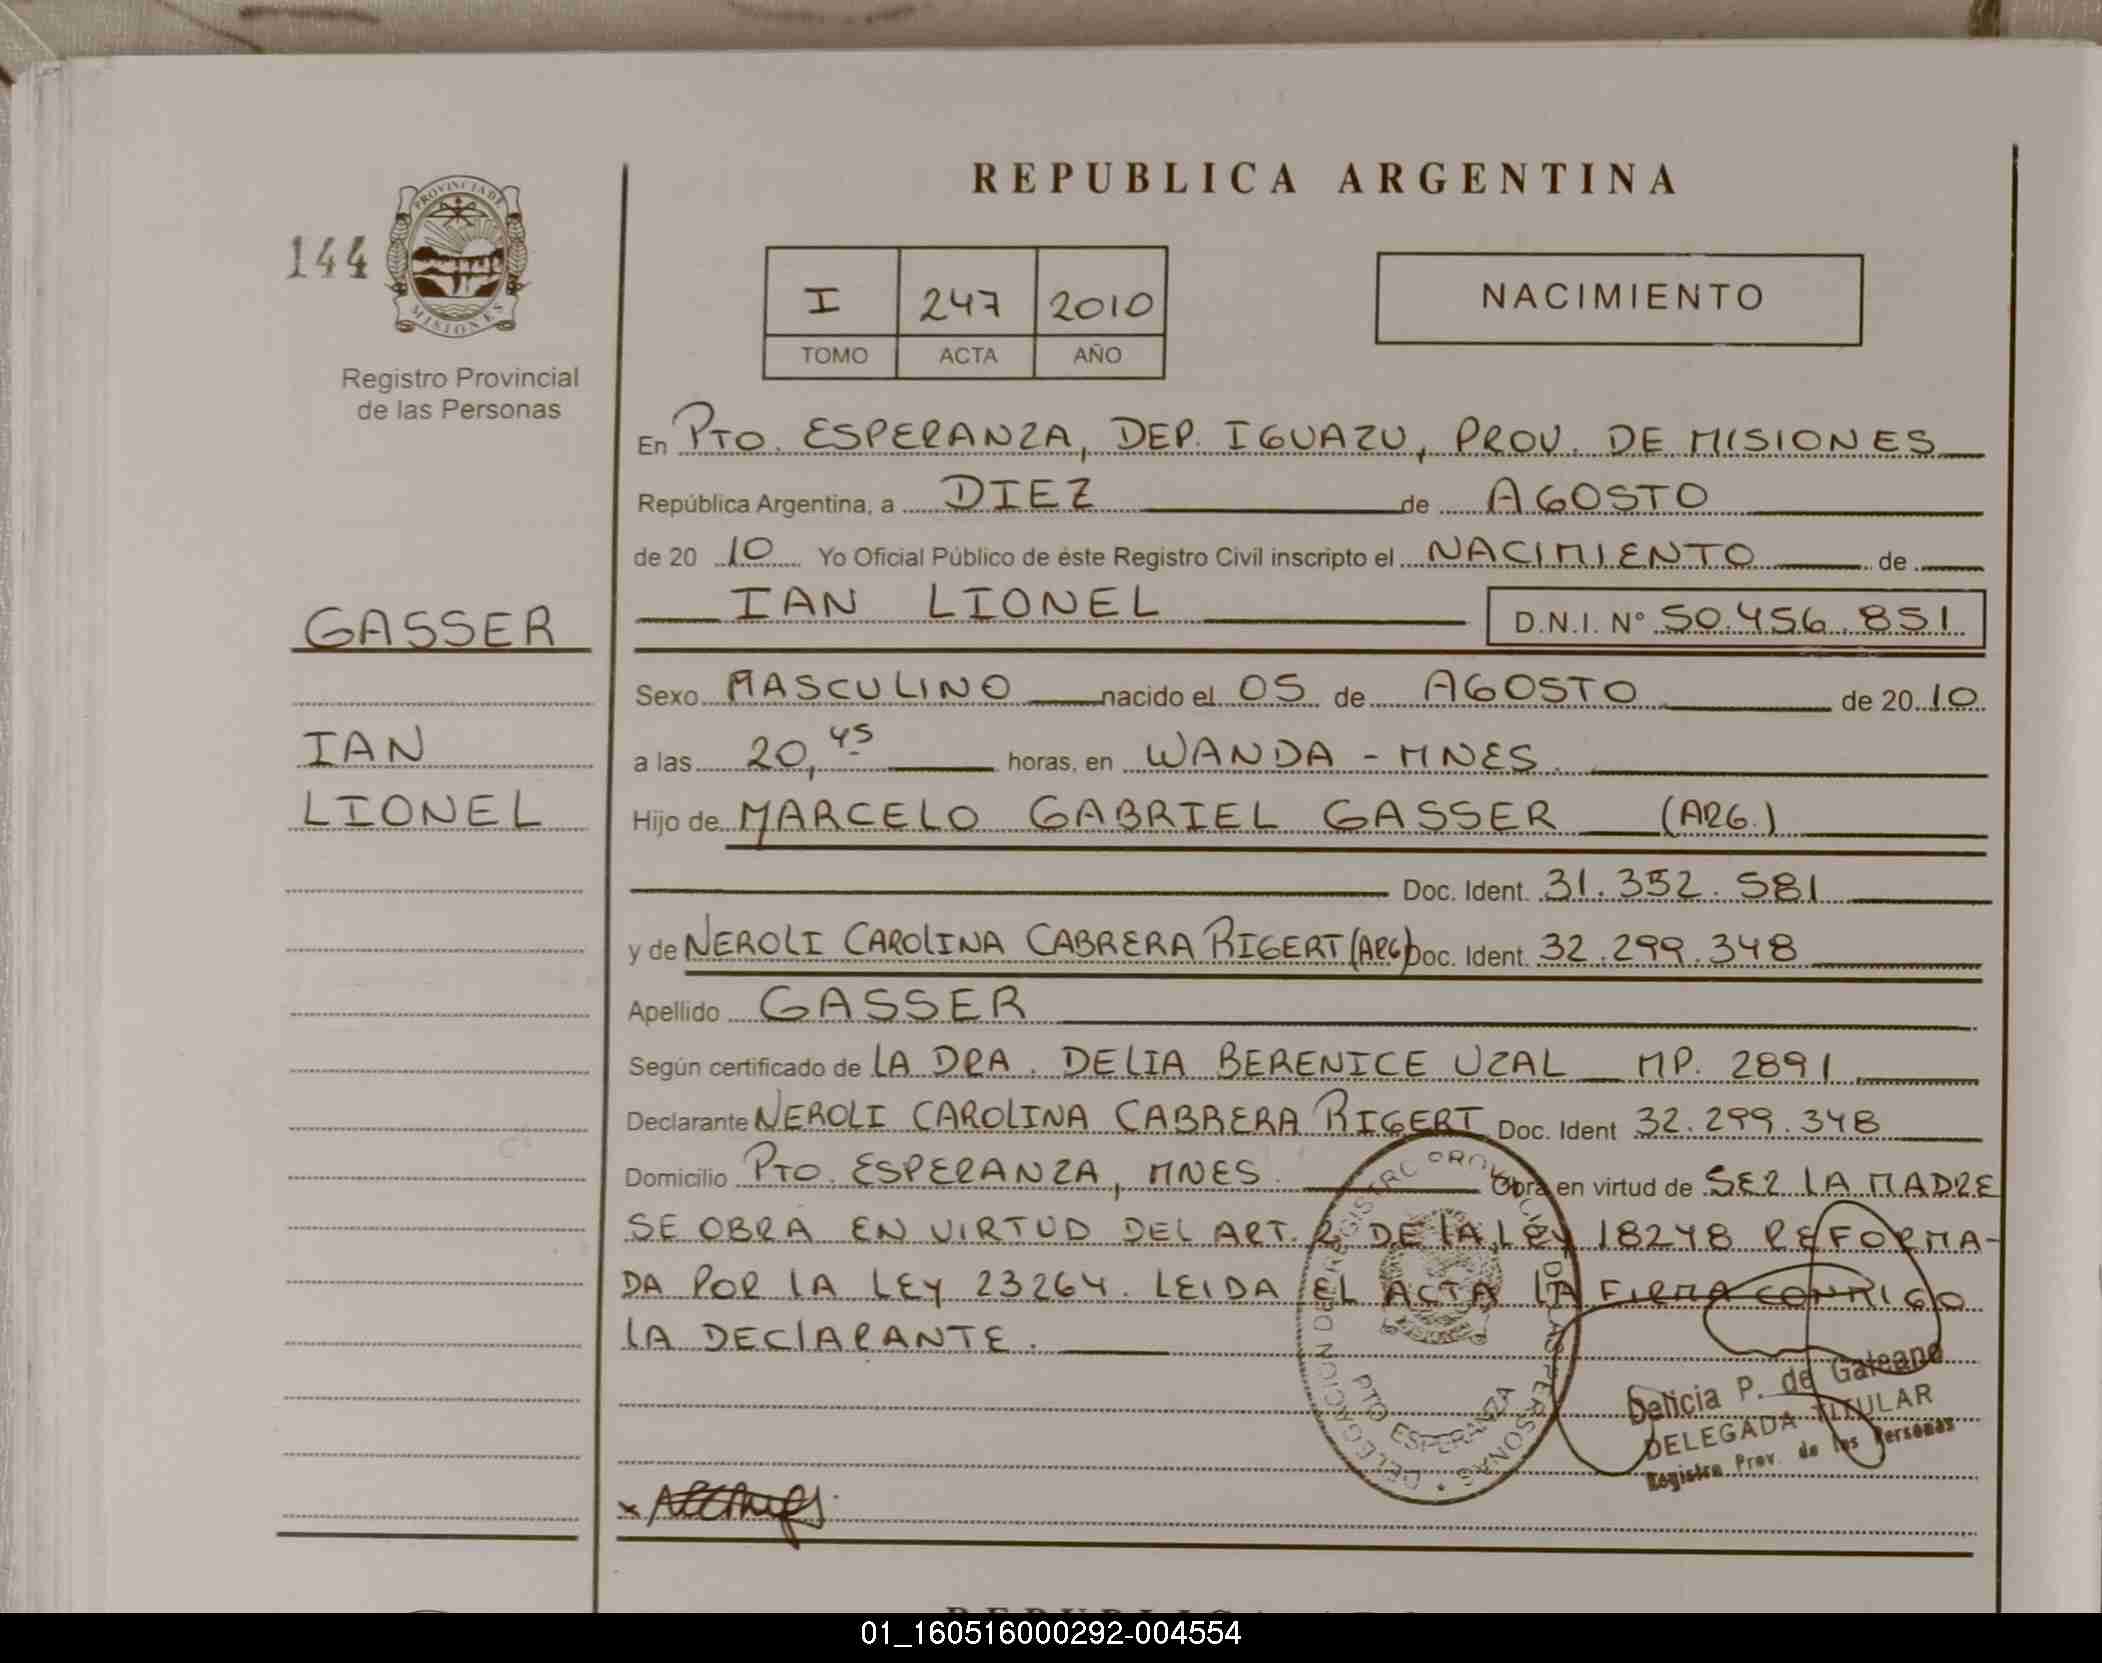 REPUBLICA ARGENTINA
144
PROVINCIA DE
MISIONES
Registro Provincial
de las Personas
I 247 2010
TOMO ACTA AÑO
NACIMIENTO
En PTO. ESPERANZA, DEP. IGUAZU, PROV. DE MISIONES
República Argentina, a DIEZ de AGOSTO
de 20 10 Yo Oficial Público de éste Registro Civil inscripto el NACIMIENTO de
IAN LIONEL D.N.I. Nº 50.456.851
GASSER
IAN
LIONEL
Sexo MASCULINO nacido el 05 de AGOSTO de 20 10
a las 20,45 horas, en WANDA - MNES.
Hijo de MARCELO GABRIEL GASSER (ARG.)
Doc. Ident. 31.352.581
y de NEROLI CAROLINA CABRERA RIGERT (ARG) Doc. Ident. 32.299.348
Apellido GASSER
Según certificado de LA DRA. DELIA BERENICE UZAL MP. 2891
Declarante NEROLI CAROLINA CABRERA RIGERT Doc. Ident 32.299.348
Domicilio PTO. ESPERANZA, MNES. Obra en virtud de SER LA MADRE
SE OBRA EN VIRTUD DEL ART. 2 DE LA LEY 18248 REFORMA-
DA POR LA LEY 23264. LEIDA EL ACTA LA FIRMA CONMIGO
LA DECLARANTE.
DELEGACION DEL REGISTRO PROVINCIAL DE LAS PERSONAS
PTO ESPERANZA
Delicia P. de Galeano
DELEGADA TITULAR
Registro Prov. de las Personas
01_160516000292-004554